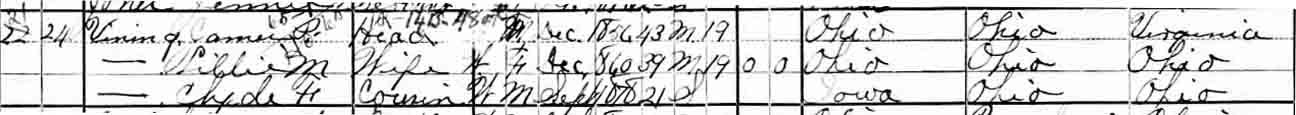 22 24 Vining James P. Head M Dec 1856 43 M 19 Ohio Ohio Virginia
— Libbie M Wife W F Dec 1860 39 M 19 0 0 Ohio Ohio Ohio
— Clyde F Cousin W M Sept 1878 21 S Iowa Ohio Ohio